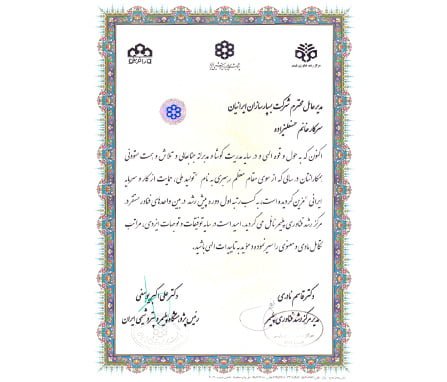 مدیرعامل محترم شرکت بسپارسازان ایرانیان
سرکار خانم حسنعلیزاده
اکنون که به حول و قوه الهی و در سایه مدیریت کوشا و مدبرانه جنابعالی و تلاش و همت ستودنی
همکارانتان در سالی که از سوی مقام معظم رهبری به نام "تولید ملی، حمایت از کار و سرمایه
ایرانی" مزین گردیده است، به کسب رتبه اول دوره پیش رشد در بین واحدهای فناور مستقر در
مرکز رشد فناوری پلیمر نائل می گردید. امید است در سایه توفیقات و توجهات ایزدی، مراتب
تکامل مادی و معنوی را سیر نموده و موید به تاییدات الهی باشید.
دکتر قاسم نادری
مدیر مرکز رشد فناوری پلیمر
دکتر علی اکبر یوسفی
رئیس پژوهشگاه پلیمر و پتروشیمی ایران